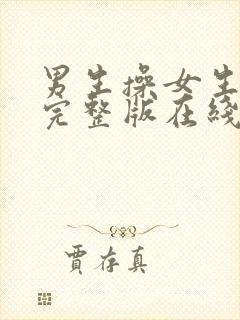 男生操女生
完整版在线
贾存真